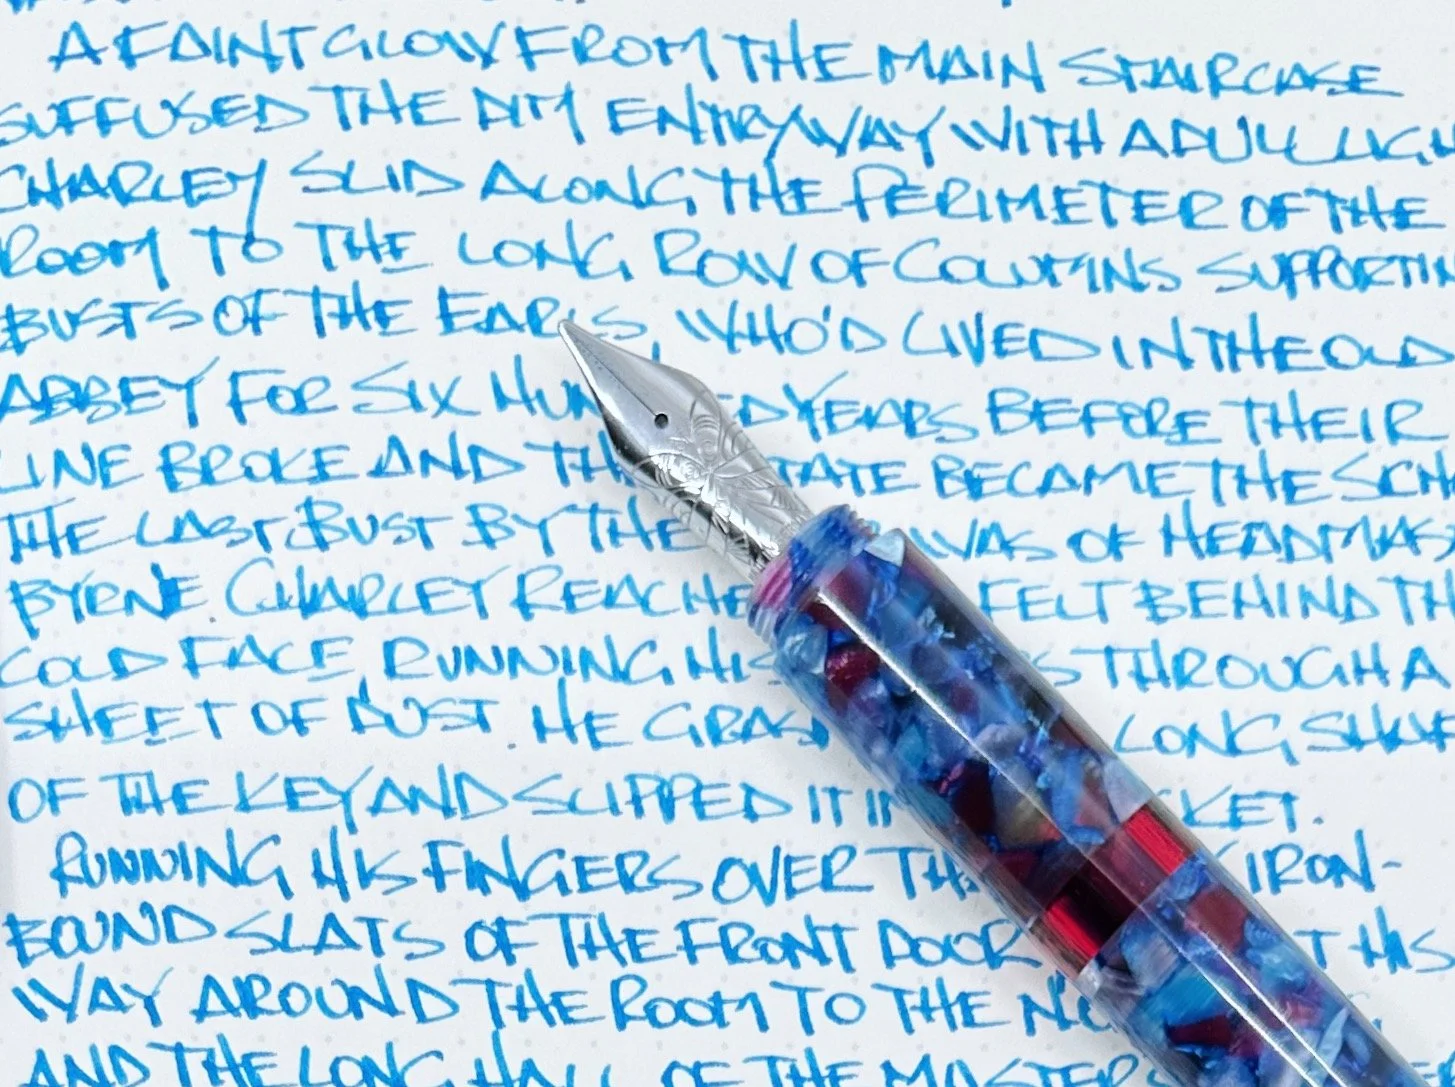 A FAINT GLOW FROM THE MAIN STAIRCASE
SUFFUSED THE DIM ENTRYWAY WITH A DULL LIGH
CHARLEY SLID ALONG THE PERIMETER OF THE
ROOM TO THE LONG ROW OF COLUMNS SUPPORTIN
BUSTS OF THE EARLS, WHO'D LIVED IN THE OLD
ABBEY FOR SIX HUN ED YEARS BEFORE THEIR
LINE BROKE AND TH TATE BECAME THE SCH
THE LAST BUST BY THE WAS OF HEADMAS
BYRNE CHARLEY REACHE FELT BEHIND TH
COLD FACE RUNNING HIS S THROUGH A
SHEET OF DUST HE GRAS LONG SHAF
OF THE KEY AND SLIPPED IT IN CKET.
RUNNING HIS FINGERS OVER TH IRON-
BOUND SLATS OF THE FRONT DOOR T HIS
WAY AROUND THE ROOM TO THE
AND THE LONG HALL OF THE MASTERS